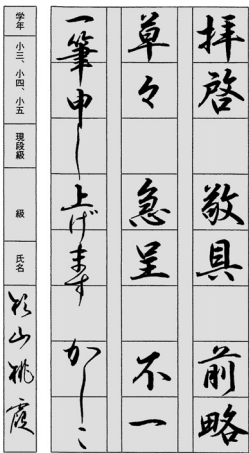 拝啓 敬具 前略
草々 急呈 不一
一筆申し上げます かしこ
学年 小三、小四、小五 現段級 級 氏名 杉山桃霞